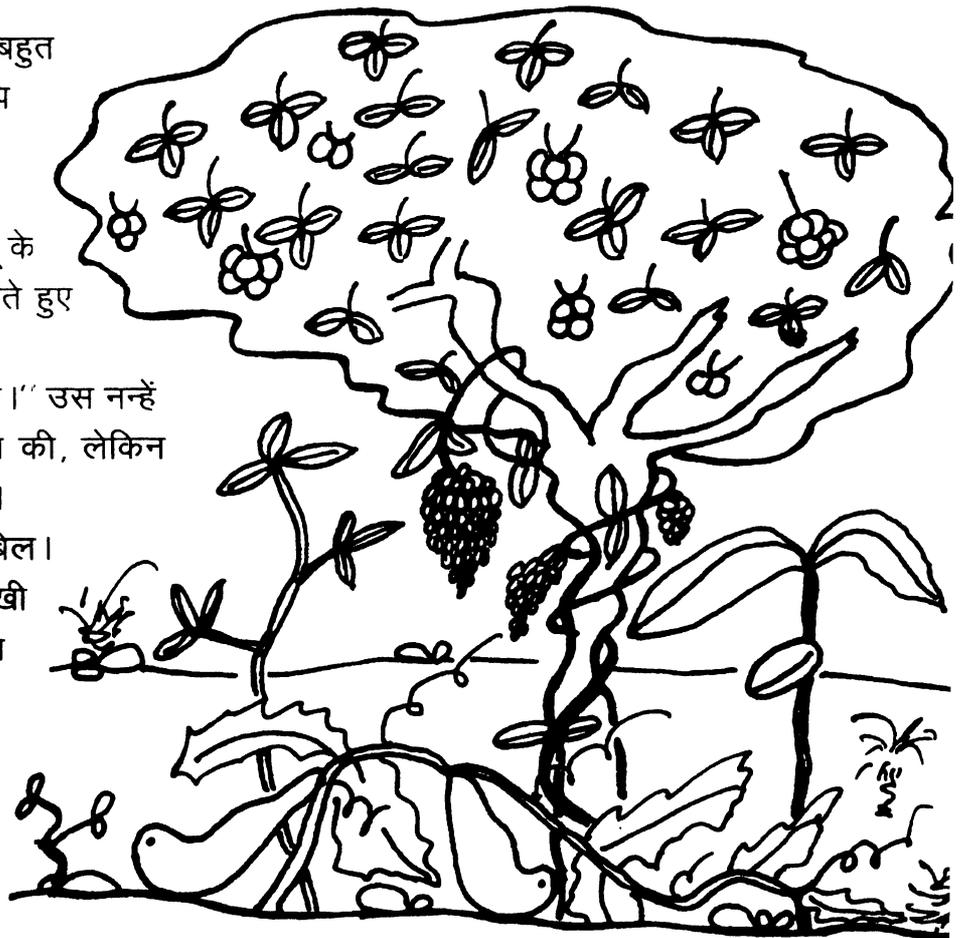 बहुत
के
ते हुए
।" उस नन्हें
की, लेकिन
।
बेल।
खी